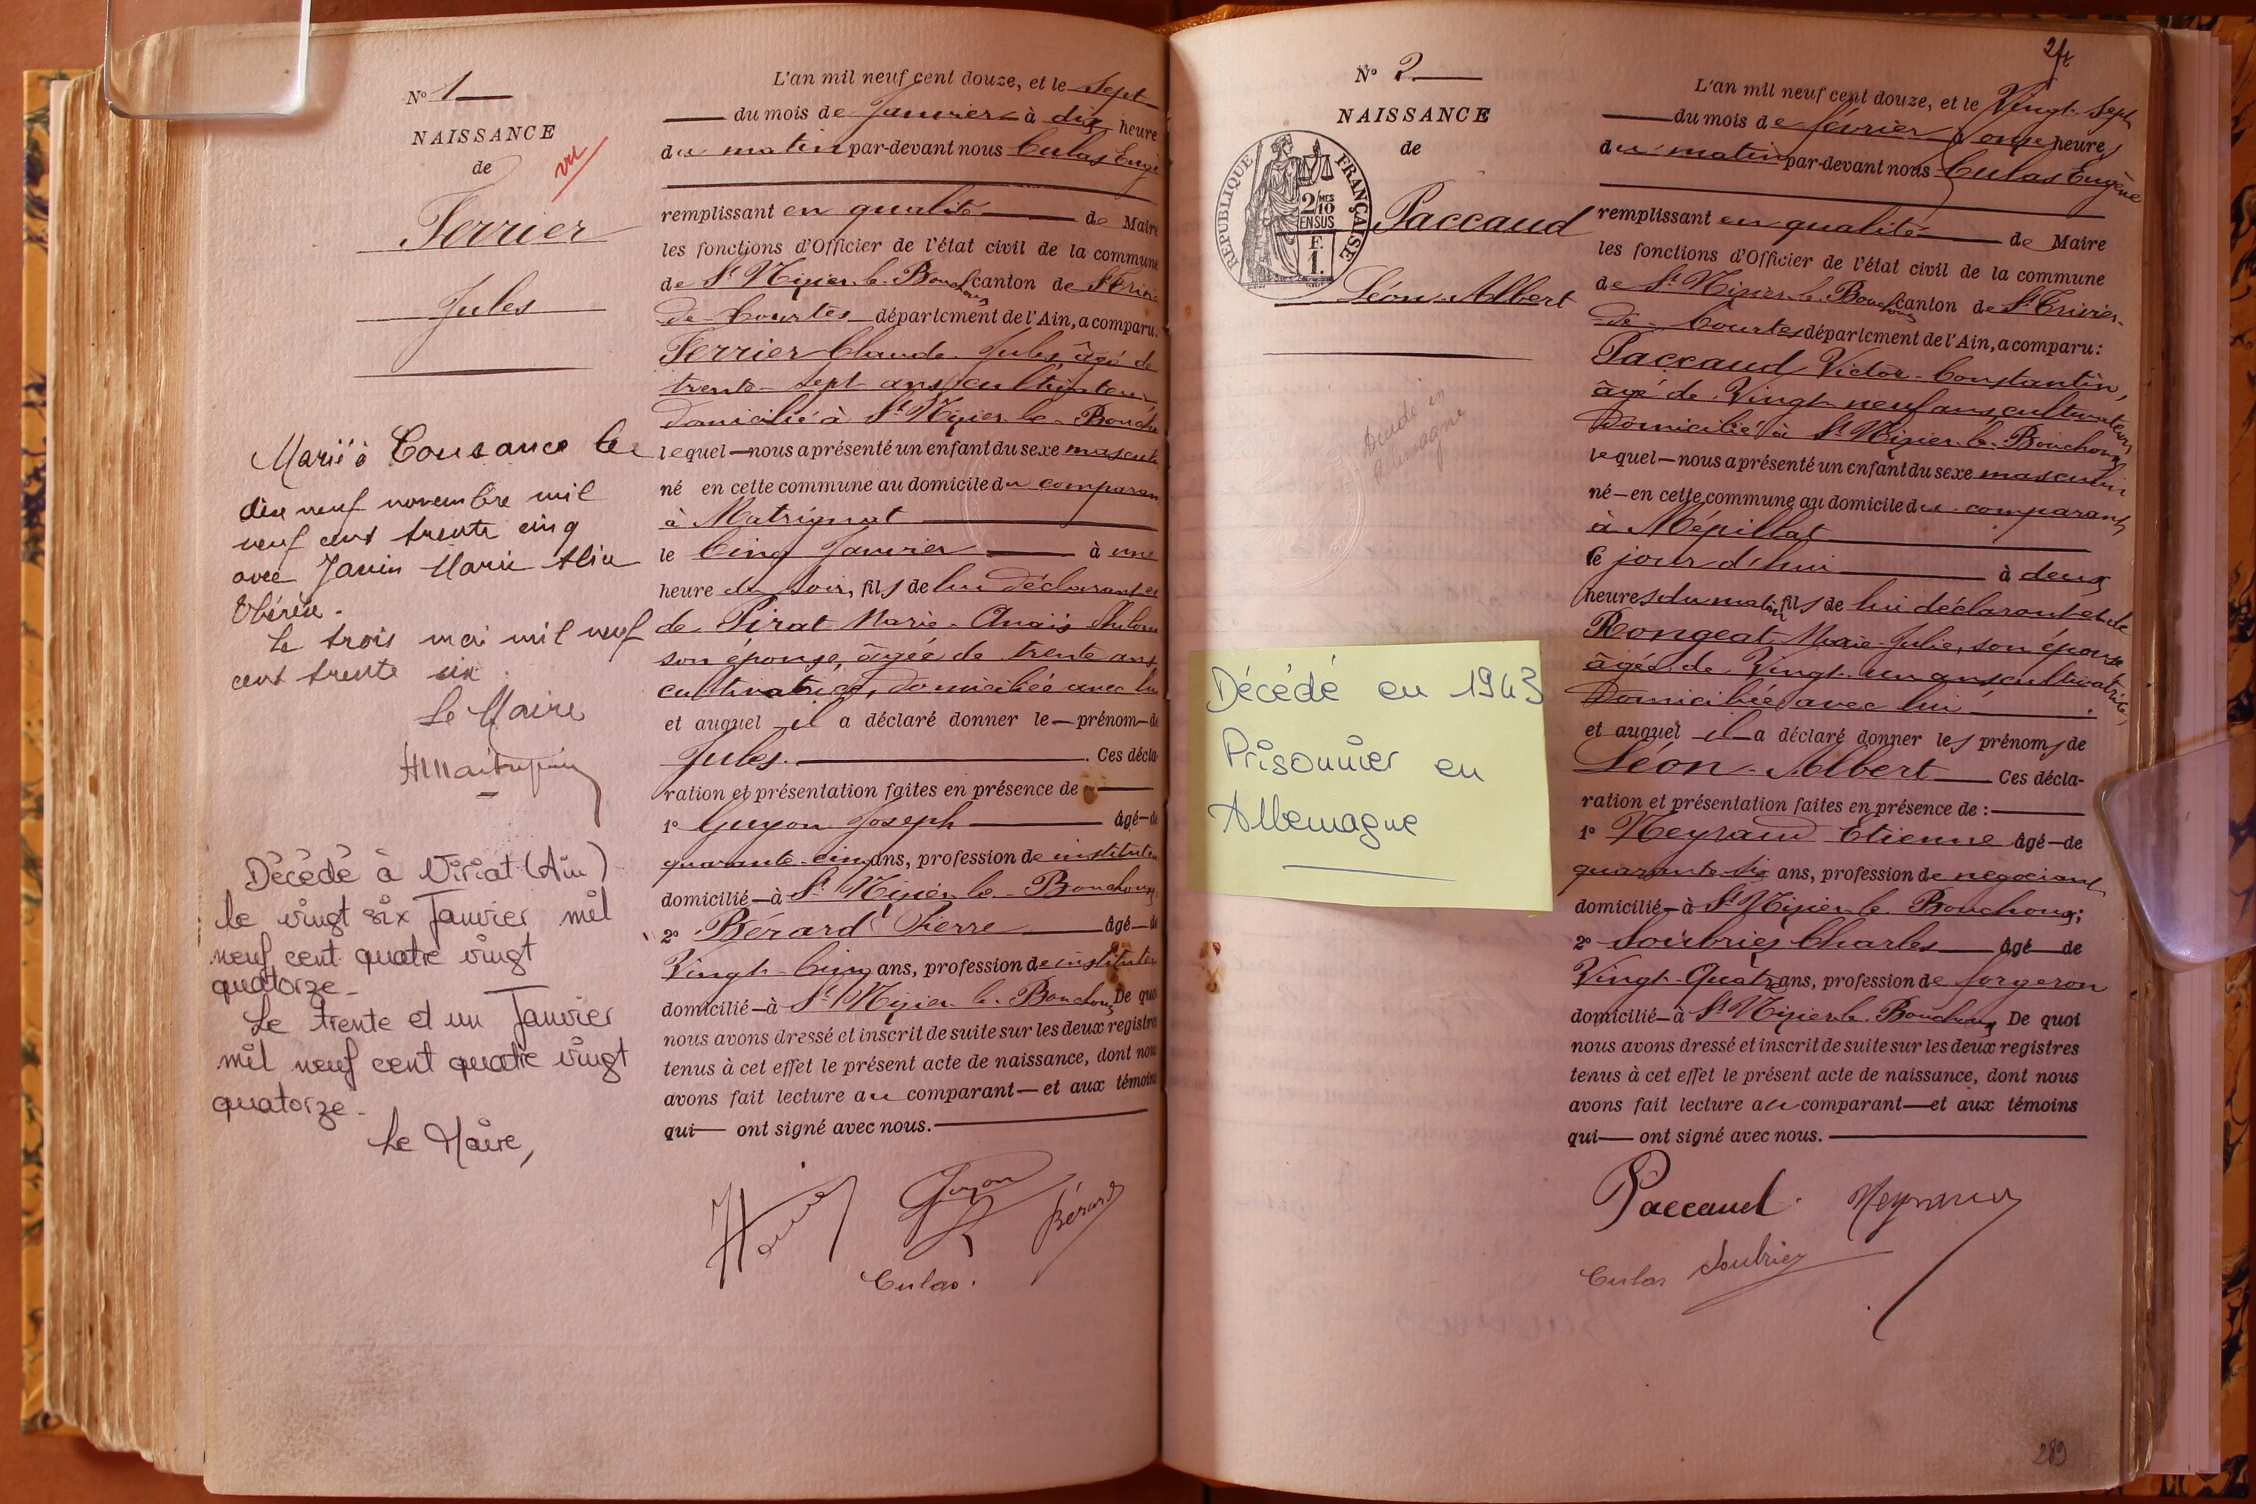 N° 1
NAISSANCE
de
vu
Ferrier
Jules
Marié à Cousance le
dix neuf novembre mil
neuf cent trente cinq
avec Janin Marie
Le trois mai mil neuf
cent trente six
Le Maire
Décédé à Viriat (Ain)
le vingt six Janvier mil
neuf cent quatre vingt
quatorze_
Le trente et un Janvier
mil neuf cent quatre vingt
quatorze_
Le Maire,
L'an mil neuf cent douze, et le Sept
du mois de Janvier à dix heure
du matin par-devant nous Culas Eugè
remplissant en qualité de Maire
les fonctions d'Officier de l'état civil de la commune
de St Nizier-le-Bouchoux canton de St Trivier
de Courtes département de l'Ain, a comparu:
Ferrier Claude Jules, âgé de
trente-sept ans, cultivateur
domicilié à St Nizier-le-Bouch
lequel nous a présenté un enfant du sexe masculin
né en cette commune au domicile du comparan
à Matrignat
le Cinq Janvier à une
heure du soir, fils de lui déclarant et
de Pirat Marie-Anaïs
son épouse, âgée de trente ans,
cultivatrice, domiciliée avec lui
et auquel il a déclaré donner le prénom de
Jules. Ces décla-
ration et présentation faites en présence de
1° Guyon Joseph âgé de
quarante-cinq ans, profession de institute
domicilié à St Nizier-le-Bouchoux,
2° Bérard Pierre âgé de
Vingt-Cinq ans, profession de instituteu
domicilié à St Nizier-le-Bouchoux De quoi
nous avons dressé et inscrit de suite sur les deux registres
tenus à cet effet le présent acte de naissance, dont nous
avons fait lecture au comparant et aux témoins
qui ont signé avec nous.
Guyon
Bérard
Culas.
24
N° 2
NAISSANCE
de
RÉPUBLIQUE FRANÇAISE
2/10 MES
EN SUS
F.
1.
Paccaud
Léon-Albert
Décédé en
Allemagne
Décédé en 1943
Prisonnier en
Allemagne
L'an mil neuf cent douze, et le Vingt-Sept
du mois de février à onze heures
du matin par-devant nous Culas Eugène
remplissant en qualité de Maire
les fonctions d'Officier de l'état civil de la commune
de St Nizier-le-Bouchoux canton de St Trivier-
de-Courtes département de l'Ain, a comparu:
Paccaud Victor-Constantin,
âgé de Vingt-neuf ans, cultivateur,
Domicilié à St Nizier-le-Bouchoux
lequel nous a présenté un enfant du sexe masculin
né en cette commune au domicile du comparant
à Mépillat
le jour d'hui à deux
heures du matin, fils de lui déclarant et de
Rongeat Marie-Julie, son épouse
âgée de Vingt-un ans cultivatrice,
Domiciliée avec lui
et auquel il a déclaré donner les prénoms de
Léon-Albert Ces décla-
ration et présentation faites en présence de:
1° Neyraud Etienne âgé de
quarante-six ans, profession de négociant
domicilié à St Nizier-le-Bouchoux;
2° Soubriez Charles âgé de
Vingt-Quatre ans, profession de forgeron
domicilié à St Nizier-le-Bouchoux De quoi
nous avons dressé et inscrit de suite sur les deux registres
tenus à cet effet le présent acte de naissance, dont nous
avons fait lecture au comparant et aux témoins
qui ont signé avec nous.
Paccaud. Neyraud
Culas Soubriez
289